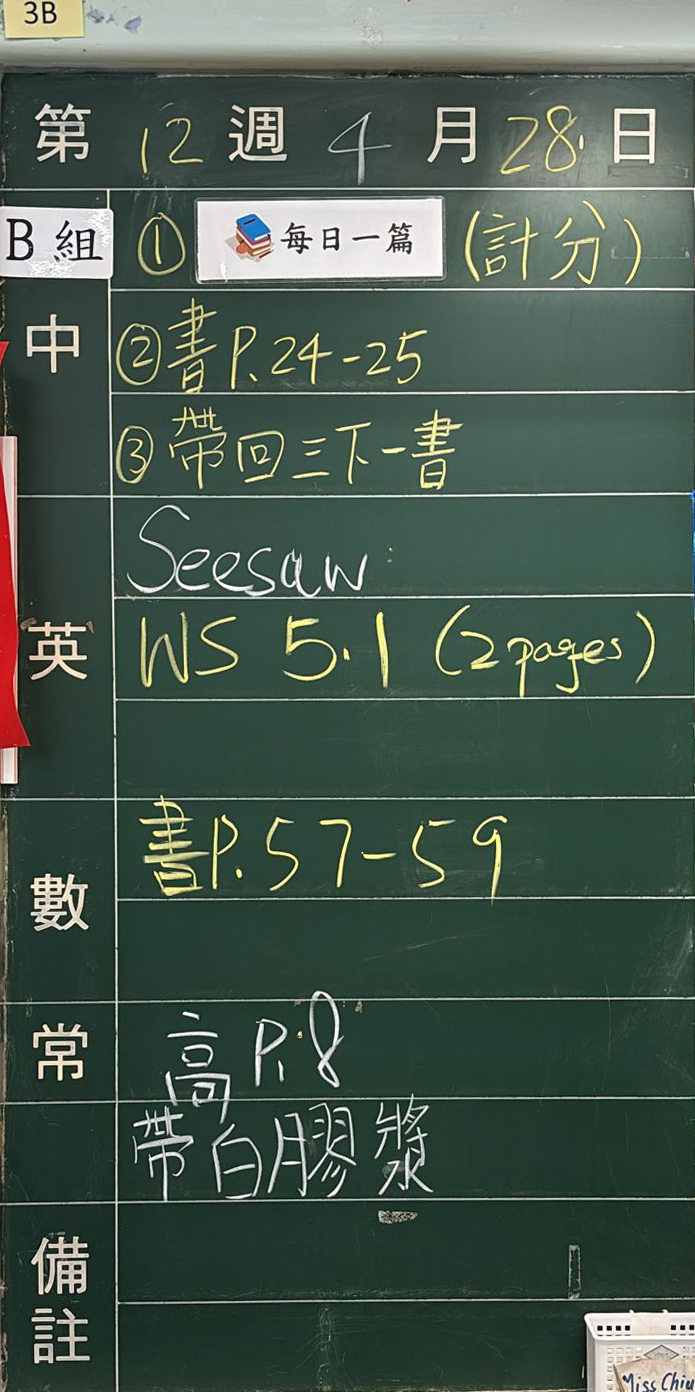 3B
第 12 週 4 月 28 日
B 組 ① 每日一篇 (計分)
中 ②書 P.24-25
③帶回三下一書
Seesaw
英 WS 5.1 (2 pages)
書P.57-59
數
常 高 P.8
帶白膠漿
備
註
Miss Chiu